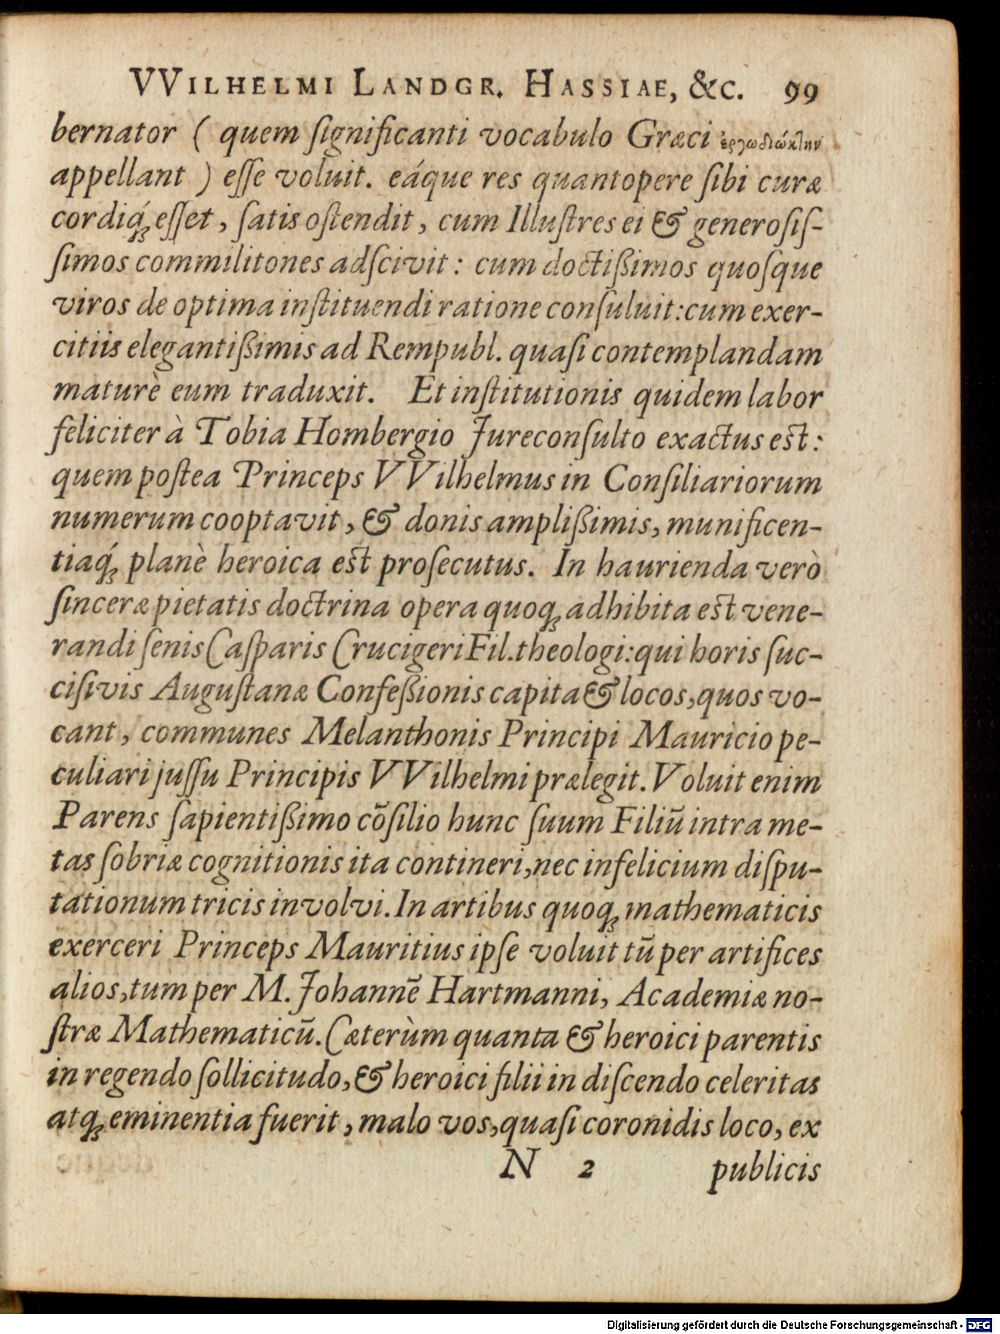 VVILHELMI LANDGR. HASSIAE, &c. 99
bernator ( quem ſignificanti vocabulo Græci ἐργωδιώκτην
appellant ) eſſe voluit. eáque res quantopere ſibi curæ
cordiq́; eſſet, ſatis oſtendit, cum Illuſtres ei & generoſiſ-
ſimos commilitones adſcivit: cum doctißimos quoſque
viros de optima inſtituendi ratione conſuluit: cum exer-
citiis elegantißimis ad Rempubl. quaſi contemplandam
maturè eum traduxit. Et inſtitutionis quidem labor
feliciter à Tobia Hombergio Jureconſulto exactus eſt:
quem poſtea Princeps VVilhelmus in Conſiliariorum
numerum cooptavit, & donis amplißimis, munificen-
tiaq́; planè heroica eſt proſecutus. In haurienda verò
ſinceræ pietatis doctrina opera quoq; adhibita eſt vene-
randi ſenis Caſparis Crucigeri Fil. theologi: qui horis ſuc-
ciſivis Auguſtanæ Confeßionis capita & locos, quos vo-
cant, communes Melanthonis Principi Mauricio pe-
culiari juſſu Principis VVilhelmi prælegit. Voluit enim
Parens ſapientißimo cōſilio hunc ſuum Filiū intra me-
tas ſobriæ cognitionis ita contineri, nec infelicium diſpu-
tationum tricis involvi. In artibus quoq; mathematicis
exerceri Princeps Mauritius ipſe voluit tū per artifices
alios, tum per M. Johannē Hartmanni, Academiæ no-
ſtræ Mathematicū. Cæterùm quanta & heroici parentis
in regendo ſollicitudo, & heroici filii in diſcendo celeritas
atq; eminentia fuerit, malo vos, quaſi coronidis loco, ex
N 2 publicis
Digitalisierung gefördert durch die Deutsche Forschungsgemeinschaft - DFG